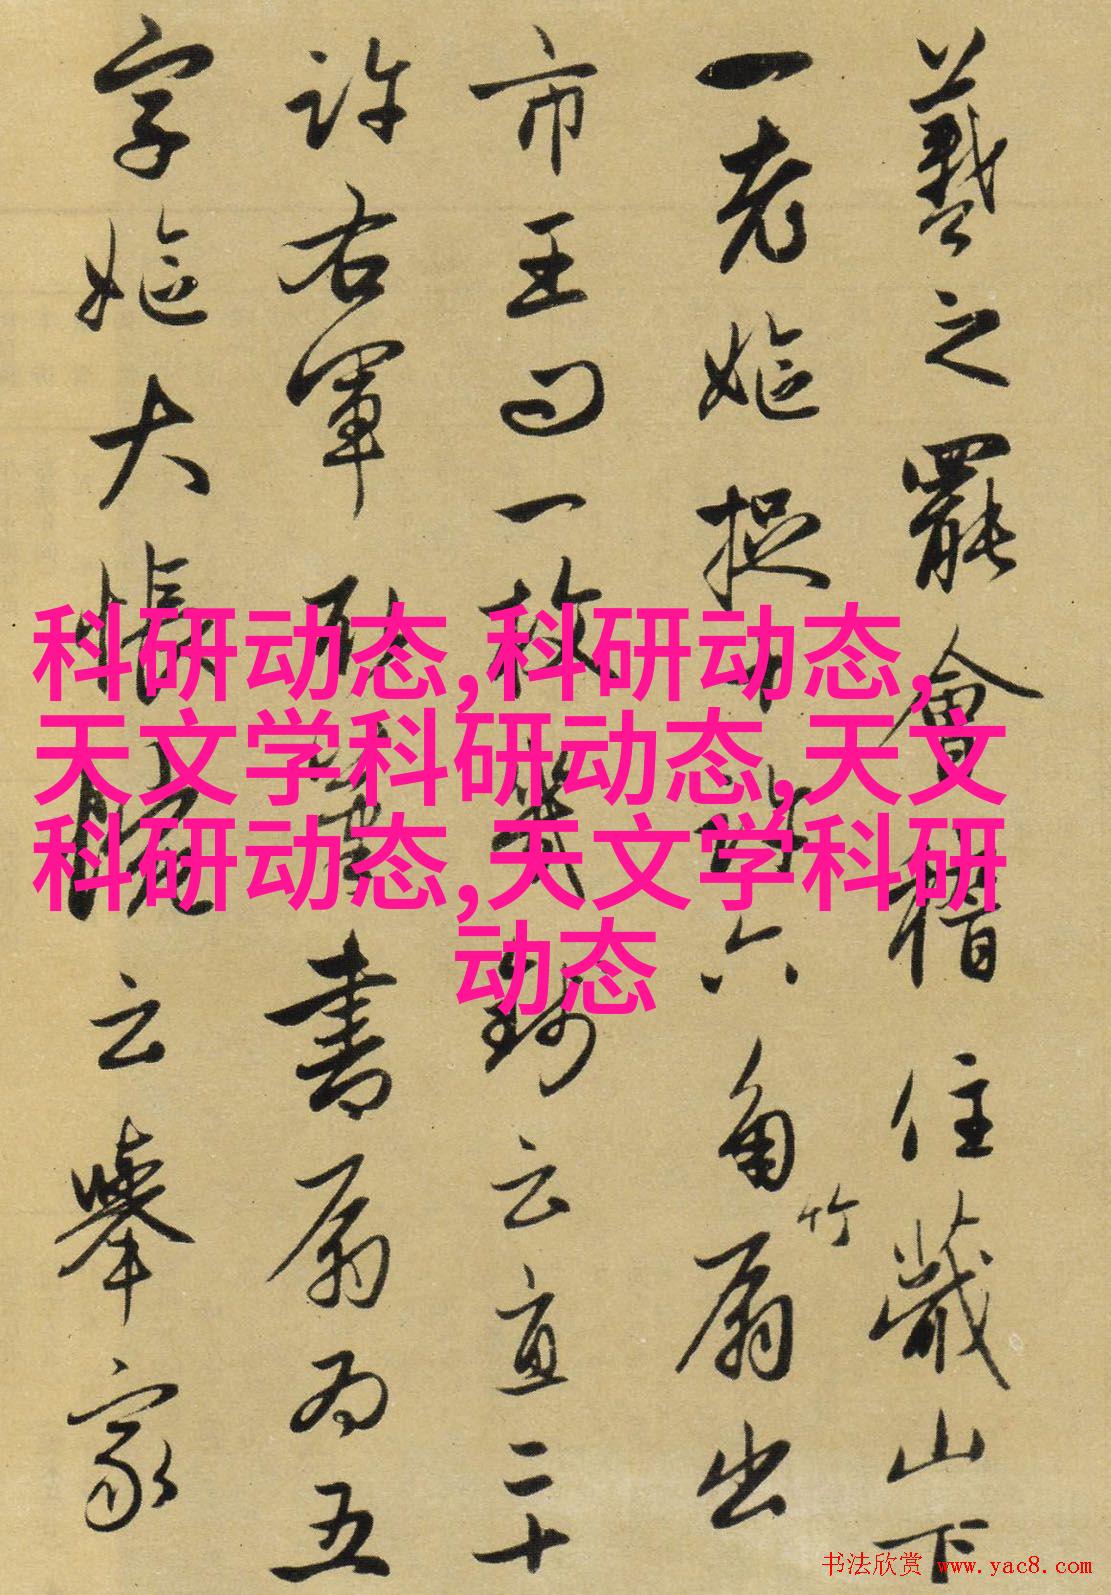 羲之罷會稽住蕺山下
一老嫗捉 六角扇出
竹
市王問一枚幾錢云直二十
許右軍取筆書扇為五
字嫗大悵惋云舉家
科研动态,科研动态,
天文学科研动态,天文
科研动态,天文学科研
动态
书法欣赏 www.yac8.com